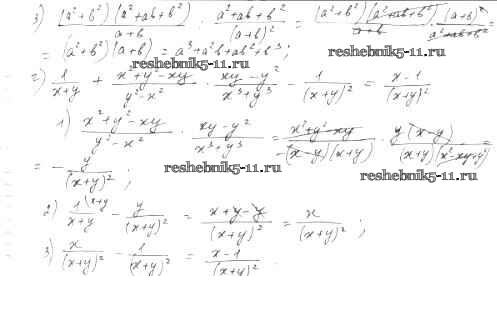 3) (a²+b²)(a²+ab+b²)/(a+b) : (a²+ab+b²)/(a+b)² = (a²+b²)(a²+ab+b²)/(a+b) · (a+b)²/(a²+ab+b²) =
= (a²+b²)(a+b) = a³+a²b+ab²+b³;
reshebnik5-11.ru
г) 1/(x+y) + (x²+y²-xy)/(y²-x²) · (xy-y²)/(x³+y³) - 1/(x+y)² = (x-1)/(x+y)²
reshebnik5-11.ru
1) (x²+y²-xy)/(y²-x²) · (xy-y²)/(x³+y³) = (x²+y²-xy)/(-(x-y)(x+y)) · y(x-y)/((x+y)(x²-xy+y²)) =
= - y/(x+y)²;
reshebnik5-11.ru
reshebnik5-11.ru
2) 1\x+y/(x+y) - y/(x+y)² = (x+y-y)/(x+y)² = x/(x+y)²;
3) x/(x+y)² - 1/(x+y)² = (x-1)/(x+y)².